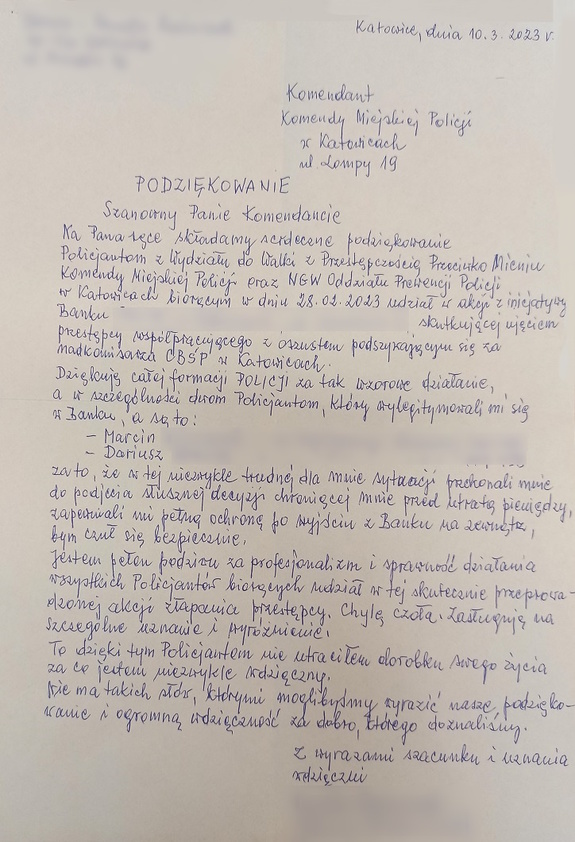 Katowice, dnia 10.3.2023 r.
Komendant
Komendy Miejskiej Policji
w Katowicach
ul Lompy 19
PODZIĘKOWANIE
Szanowny Panie Komendancie
Na Pana ręce składamy serdeczne podziękowanie
Policjantom z Wydziału do Walki z Przestępczością Przeciwko Mieniu
Komendy Miejskiej Policji oraz NGW Oddziału Prewencji Policji
w Katowicach biorącym w dniu 28.02.2023 udział w akcji z inicjatywy
Banku skutkującej ujęciem
przestępcy współpracującego z oszustem podszywającym się za
nadkomisarza CBŚP w Katowicach.
Dziękuję całej formacji POLICJI za tak wzorowe działanie,
a w szczególności dwom Policjantom, który wylegitymowali mi się
w Banku, a są to:
- Marcin
- Dariusz
za to, że w tej niezwykle trudnej dla mnie sytuacji przekonali mnie
do podjęcia słusznej decyzji chroniącej mnie przed utratą pieniędzy,
zapewniali mi pełną ochronę po wyjściu z Banku na zewnątrz,
bym czuł się bezpiecznie.
Jestem pełen podziwu za profesjonalizm i sprawność działania
wszystkich Policjantów biorących udział w tej skutecznie przeprowa-
dzonej akcji złapania przestępcy. Chylę czoła. Zasługują na
szczególne uznanie i wyróżnienie.
To dzięki tym Policjantom nie utraciłem dorobku swego życia
za co jestem niezwykle wdzięczny.
Nie ma takich słów, którymi moglibyśmy wyrazić nasze podzięko-
wanie i ogromną wdzięczność za dobro, którego doznaliśmy.
Z wyrazami szacunku i uznania
wdzięczni